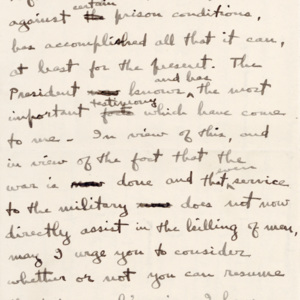 certain
against the prison conditions,
has accomplished all that it can,
at best for the present. The
and has
President knows the most
testimony
important facts which have come
to me – In view of this, and
in view of the fact that the
even
war is now done and that service
to the military does not now
directly assist in the killing of men,
may I urge you to consider
whether or not you can resume